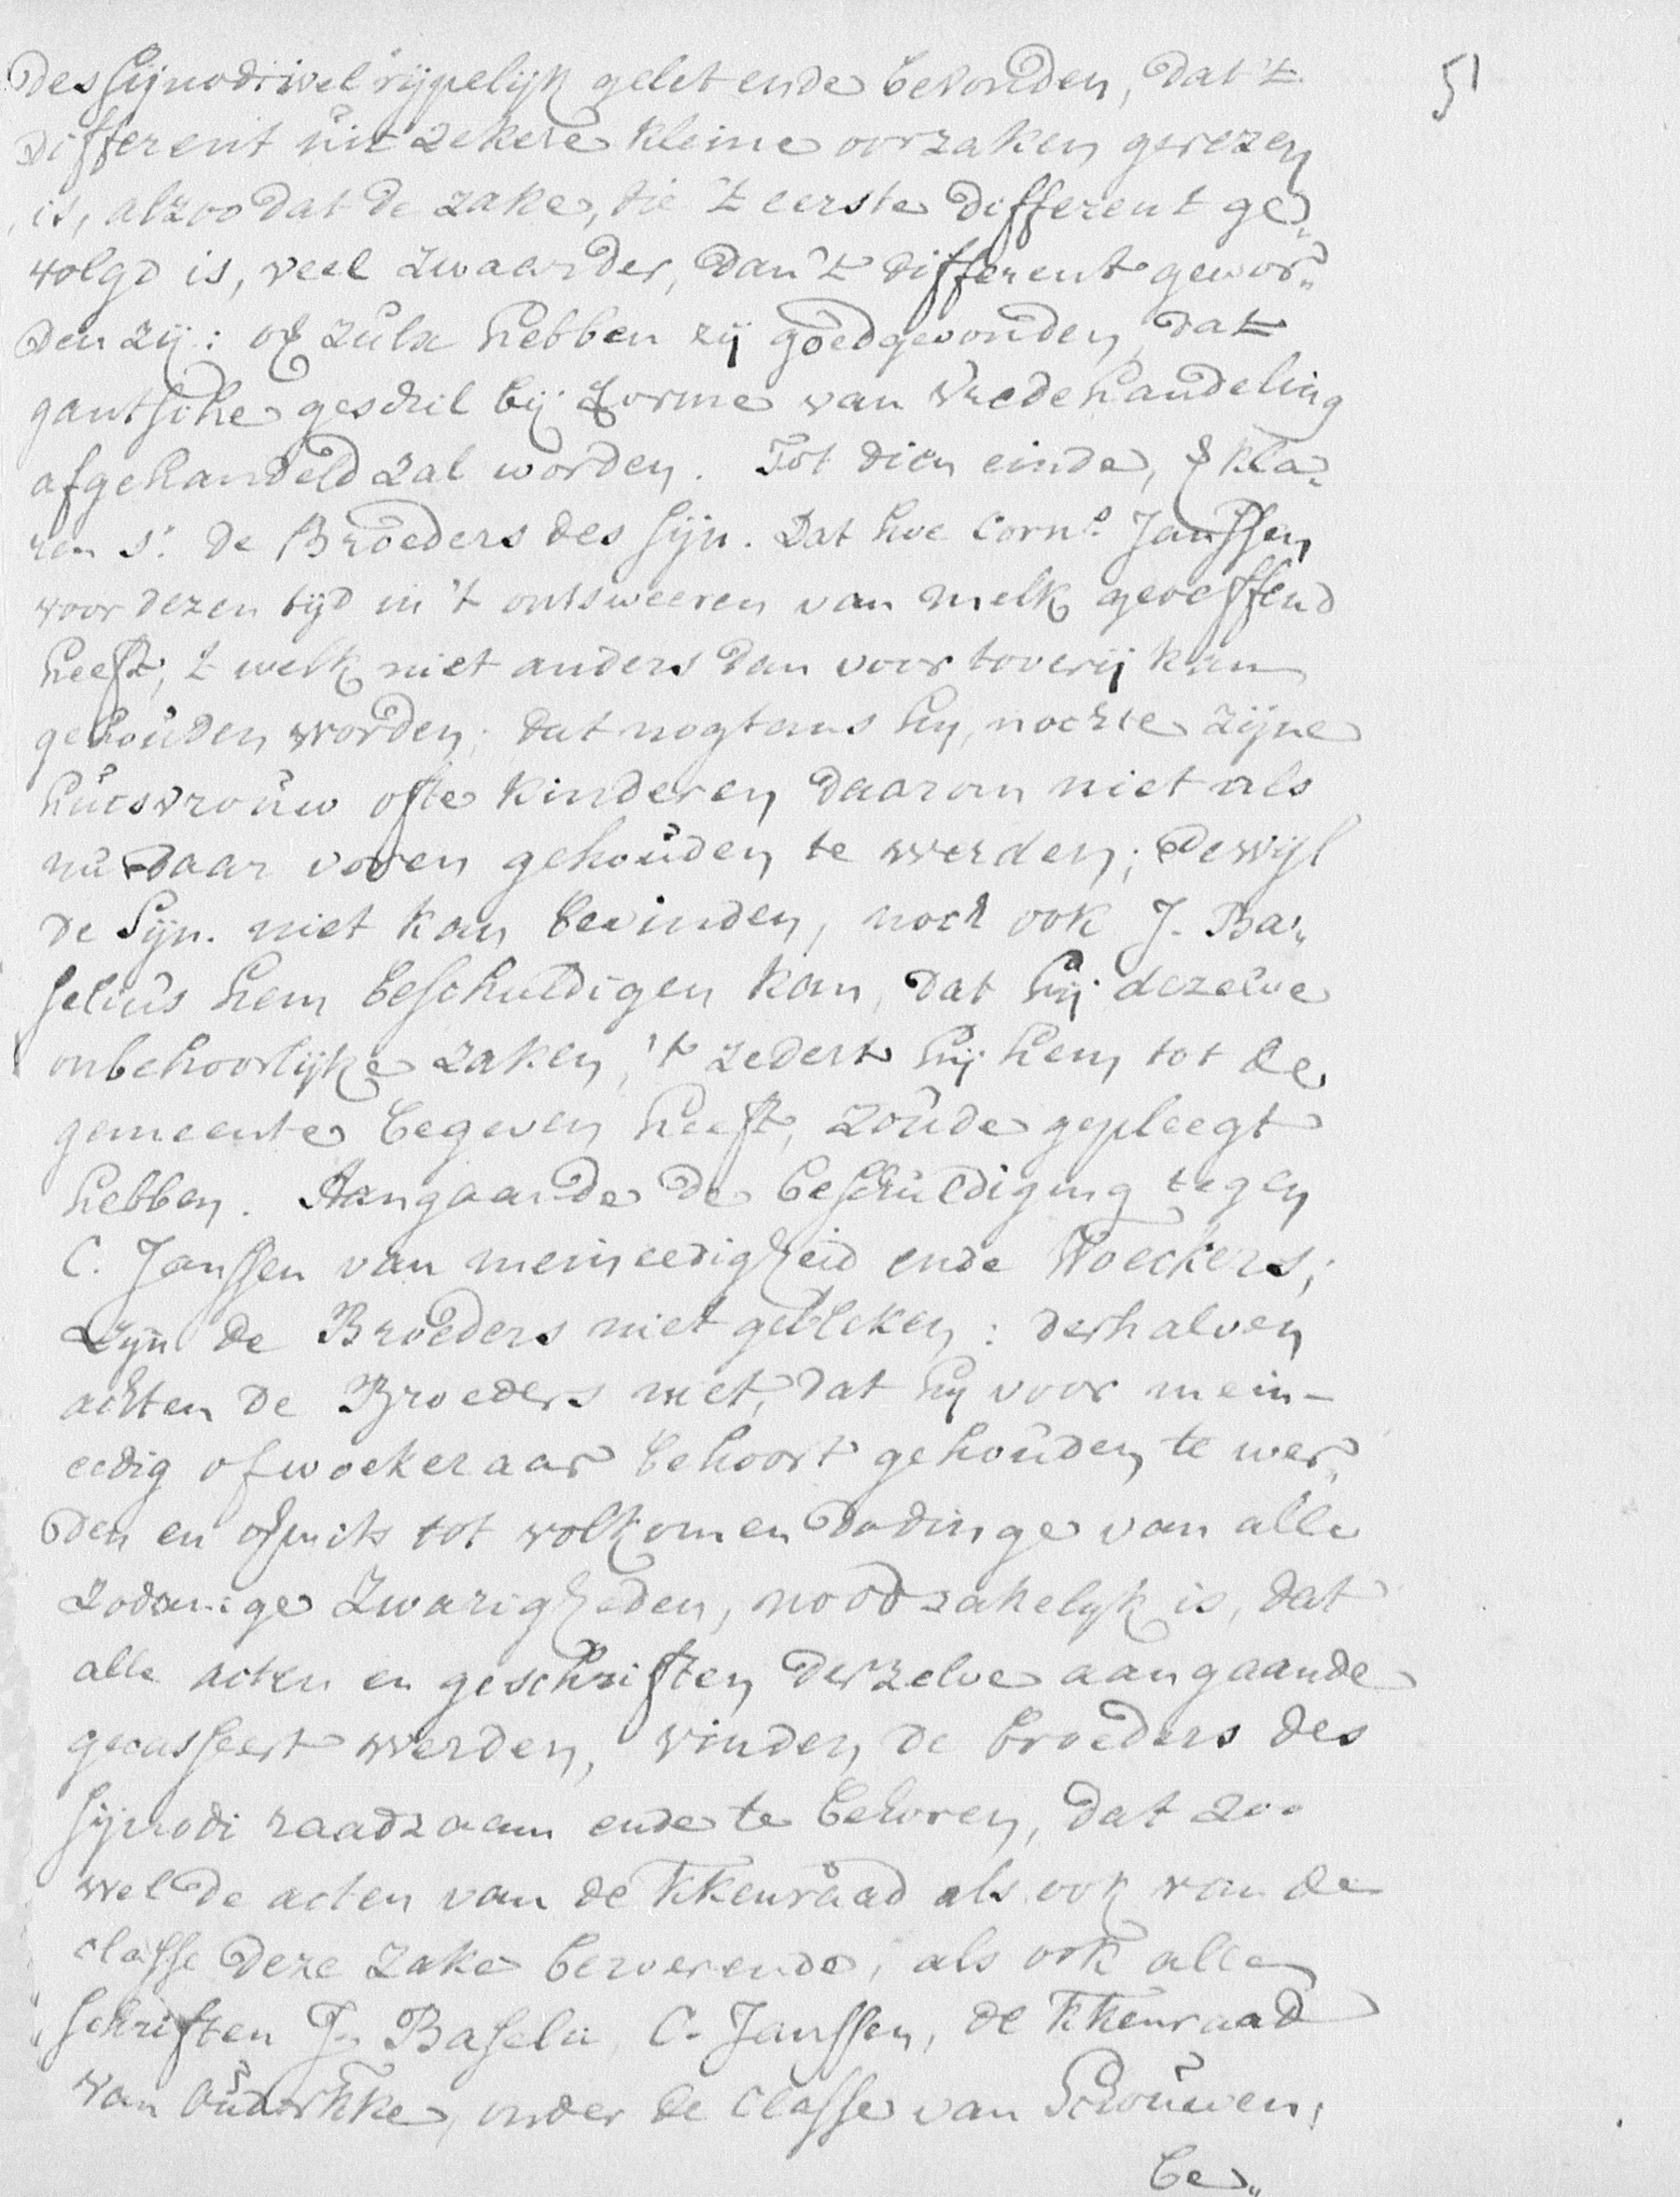 51
des Sijnodi wel rijpelijk gelet ende bevonden, dat 't
different uit zekere kleine oorzaken gerezen
is, alzoo dat de zake, die 't eerste different ge„
volgd is, veel zwaarder, dan 't different gewor„
den zij: op zulx hebben zij goedgevonden dat
gantsche geschil bij forme van vredehandeling
afgehandeld zal worden. Tot dien einde, verkla„
ren s. de Broeders des Sijn. Dat hoe Corn.s Janssen
voor dezen tijd in 't ontsweeren van melk geoeffend
heeft, 't welk niet anders dan voor toverij kan
gehouden worden; dat nogtans hij, nochte zijne
huisvrouw ofte kinderen daarom niet als
nu daar voren gehouden te werden; dewijl
de Sijn. niet kan bevinden, noch ook J. Ba„
selius hem beschuldigen kan, dat hij dezelve
onbehoorlijke zaken, 't zedert hij hem tot de
gemeente begeven heeft, zoude gepleegt
hebben. Aangaande de beschuldiging tegen
C. Janssen van meineedigheid ende Woeckers;
zijn de Broeders niet gebleken: derhalven
achten de Broeders niet, dat hij voor mein-
eedig of woekeraar behoort gehouden te wer„
den en tot volkomen dodinge van alle
zodanige zwarigheden, noodzakelijk is, dat
alle acten en geschriften derzelve aangaande
gecasseert werden, vinden de broeders des
Sijnodi raadzaam ende te behoren, dat zoo
wel de acten van de Kkenraad als ook van de
classe deze zake beroerende, als ook alle
schriften J. Baselii, C. Janssen, de Kkenraad
van Ouderkke, onder de Classe van Schouwen,
be„